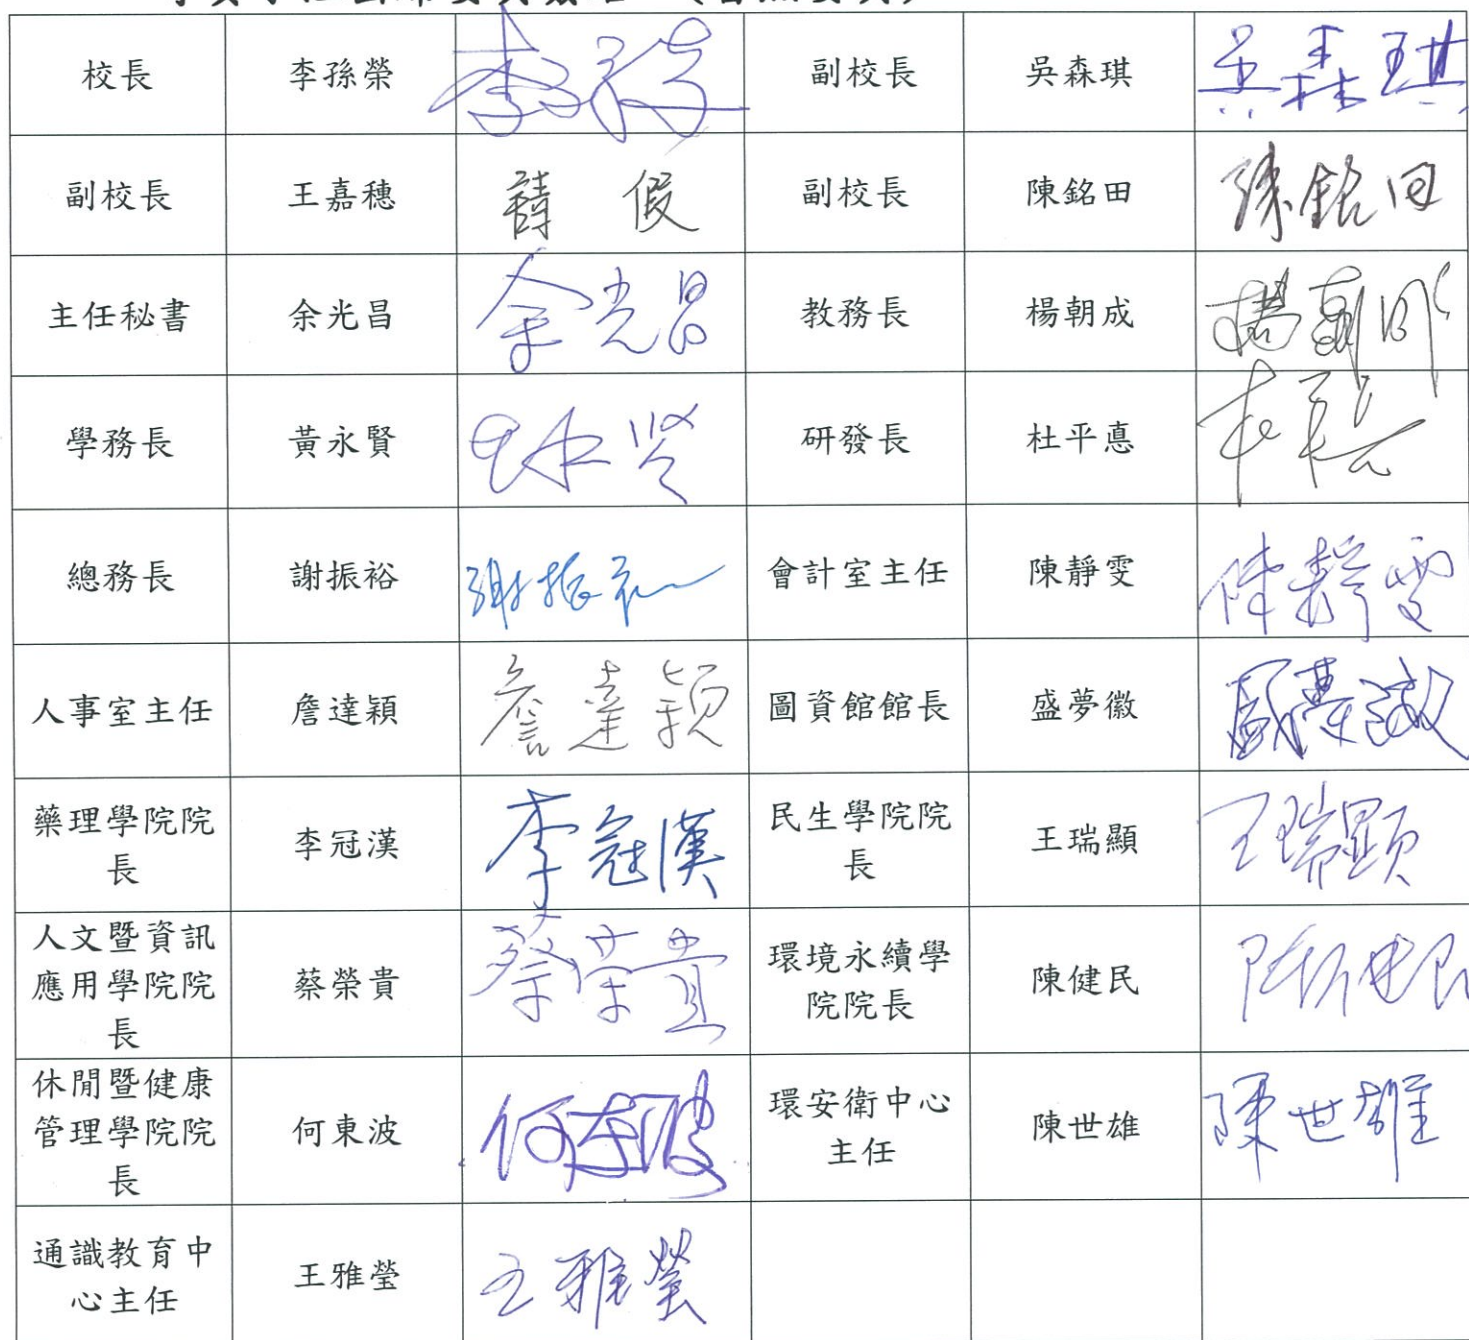 校長 李孫榮 李孫榮 副校長 吳森琪 吳森琪
副校長 王嘉穗 請假 副校長 陳銘田 陳銘田
主任秘書 余光昌 余光昌 教務長 楊朝成 楊朝成
學務長 黃永賢 研發長 杜平悳
總務長 謝振裕 謝振裕 會計室主任 陳靜雯 陳靜雯
人事室主任 詹達穎 詹達穎 圖資館館長 盛夢徽 盛夢徽
藥理學院院
長
李冠漢 李冠漢
民生學院院
長
王瑞顯 王瑞顯
人文暨資訊
應用學院院
長
蔡榮貴 蔡榮貴
環境永續學
院院長
陳健民 陳健民
休閒暨健康
管理學院院
長
何東波 何東波
環安衛中心
主任
陳世雄 陳世雄
通識教育中
心主任
王雅瑩 王雅瑩